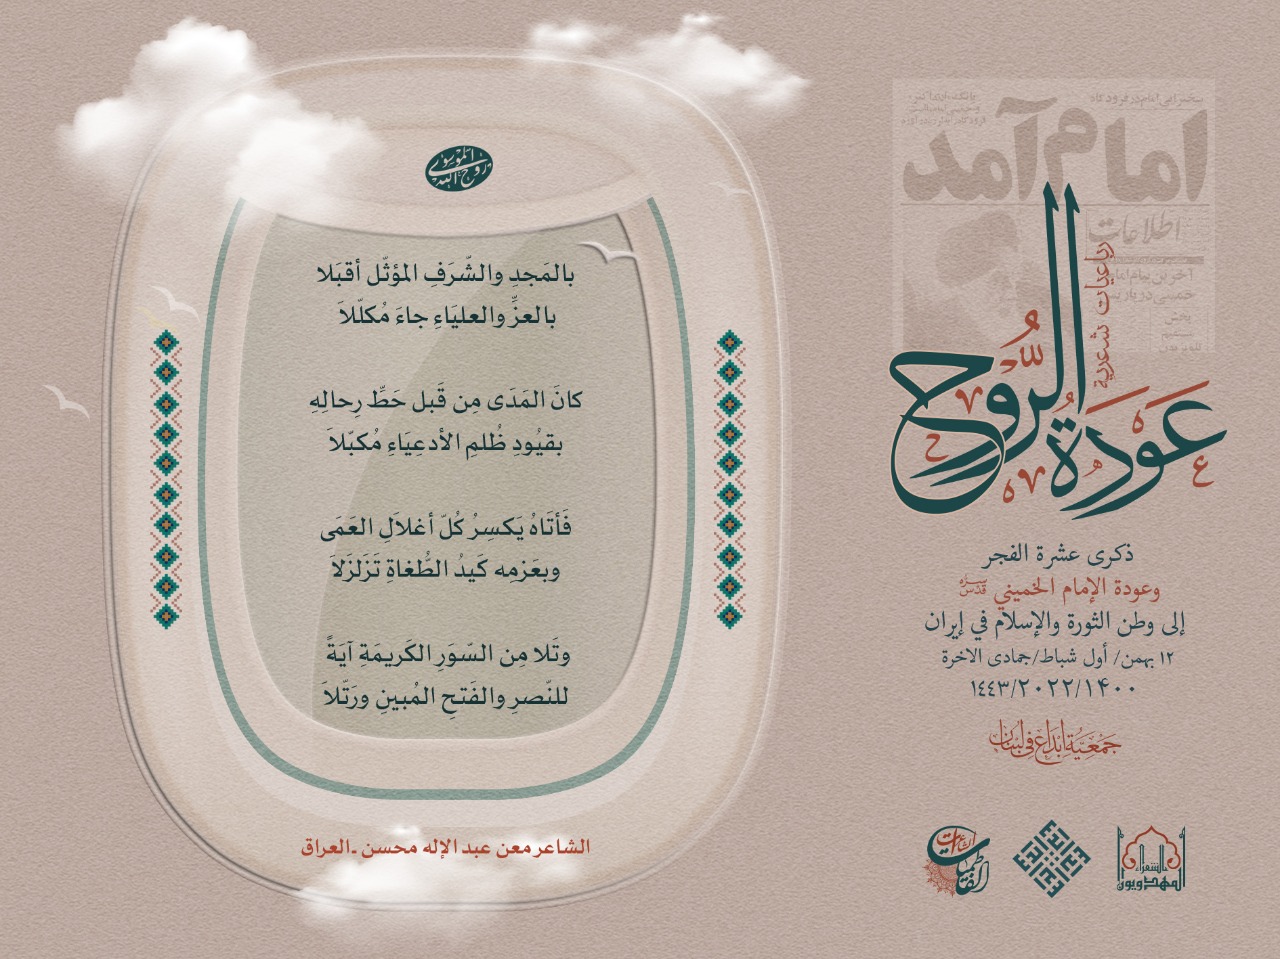 امام آمد
اطلاعات
رباعيات شعرية
عودة الرّوح
ذكرى عشرة الفجر
وعودة الإمام الخميني قدّس سرّه
إلى وطن الثورة والإسلام في إيران
١٢ بهمن/ أول شباط/جمادى الاخرة
١٤٤٣/٢٠٢٢/١٤٠٠
جمعيّة إبداع في لبنان
روح الله الموسوي
بالمَجدِ والشّرَفِ المؤثّل أقبَلا
بالعزِّ والعليَاءِ جاءَ مُكلّلاَ
كانَ المَدَى مِن قَبل حَطِّ رِحالِهِ
بقيُودِ ظُلمِ الأدعِيَاءِ مُكبّلاَ
فَأتَاهُ يَكسِرُ كُلّ أغلاَلِ العَمَى
وبعَزمِه كَيدُ الطُّغاةِ تَزَلزَلاَ
وتَلا مِن السّوَرِ الكَريمَةِ آيَةً
للنّصرِ والفَتحِ المُبينِ ورَتّلاَ
الشاعر معن عبد الإله محسن ـ العراق
الشعراء المهدويون